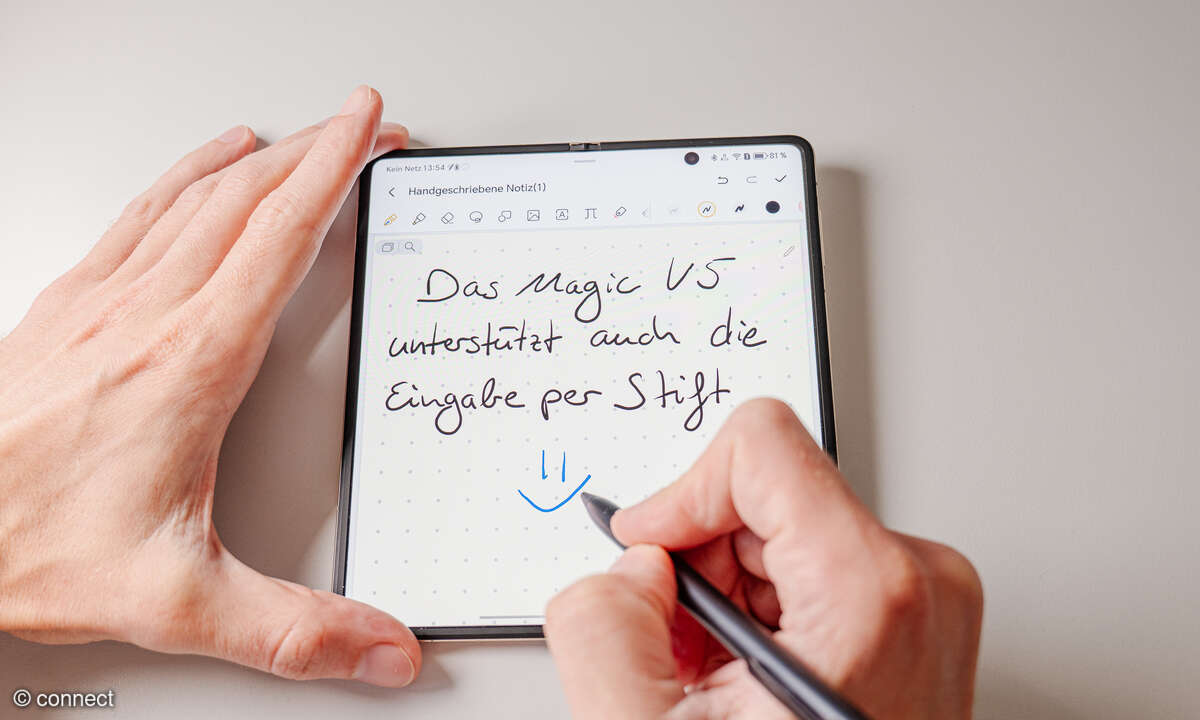 Kein Netz 13:54
81 %
Handgeschriebene Notiz(1)
Das Magic V5
unterstützt auch die
Eingabe per Stift
© connect